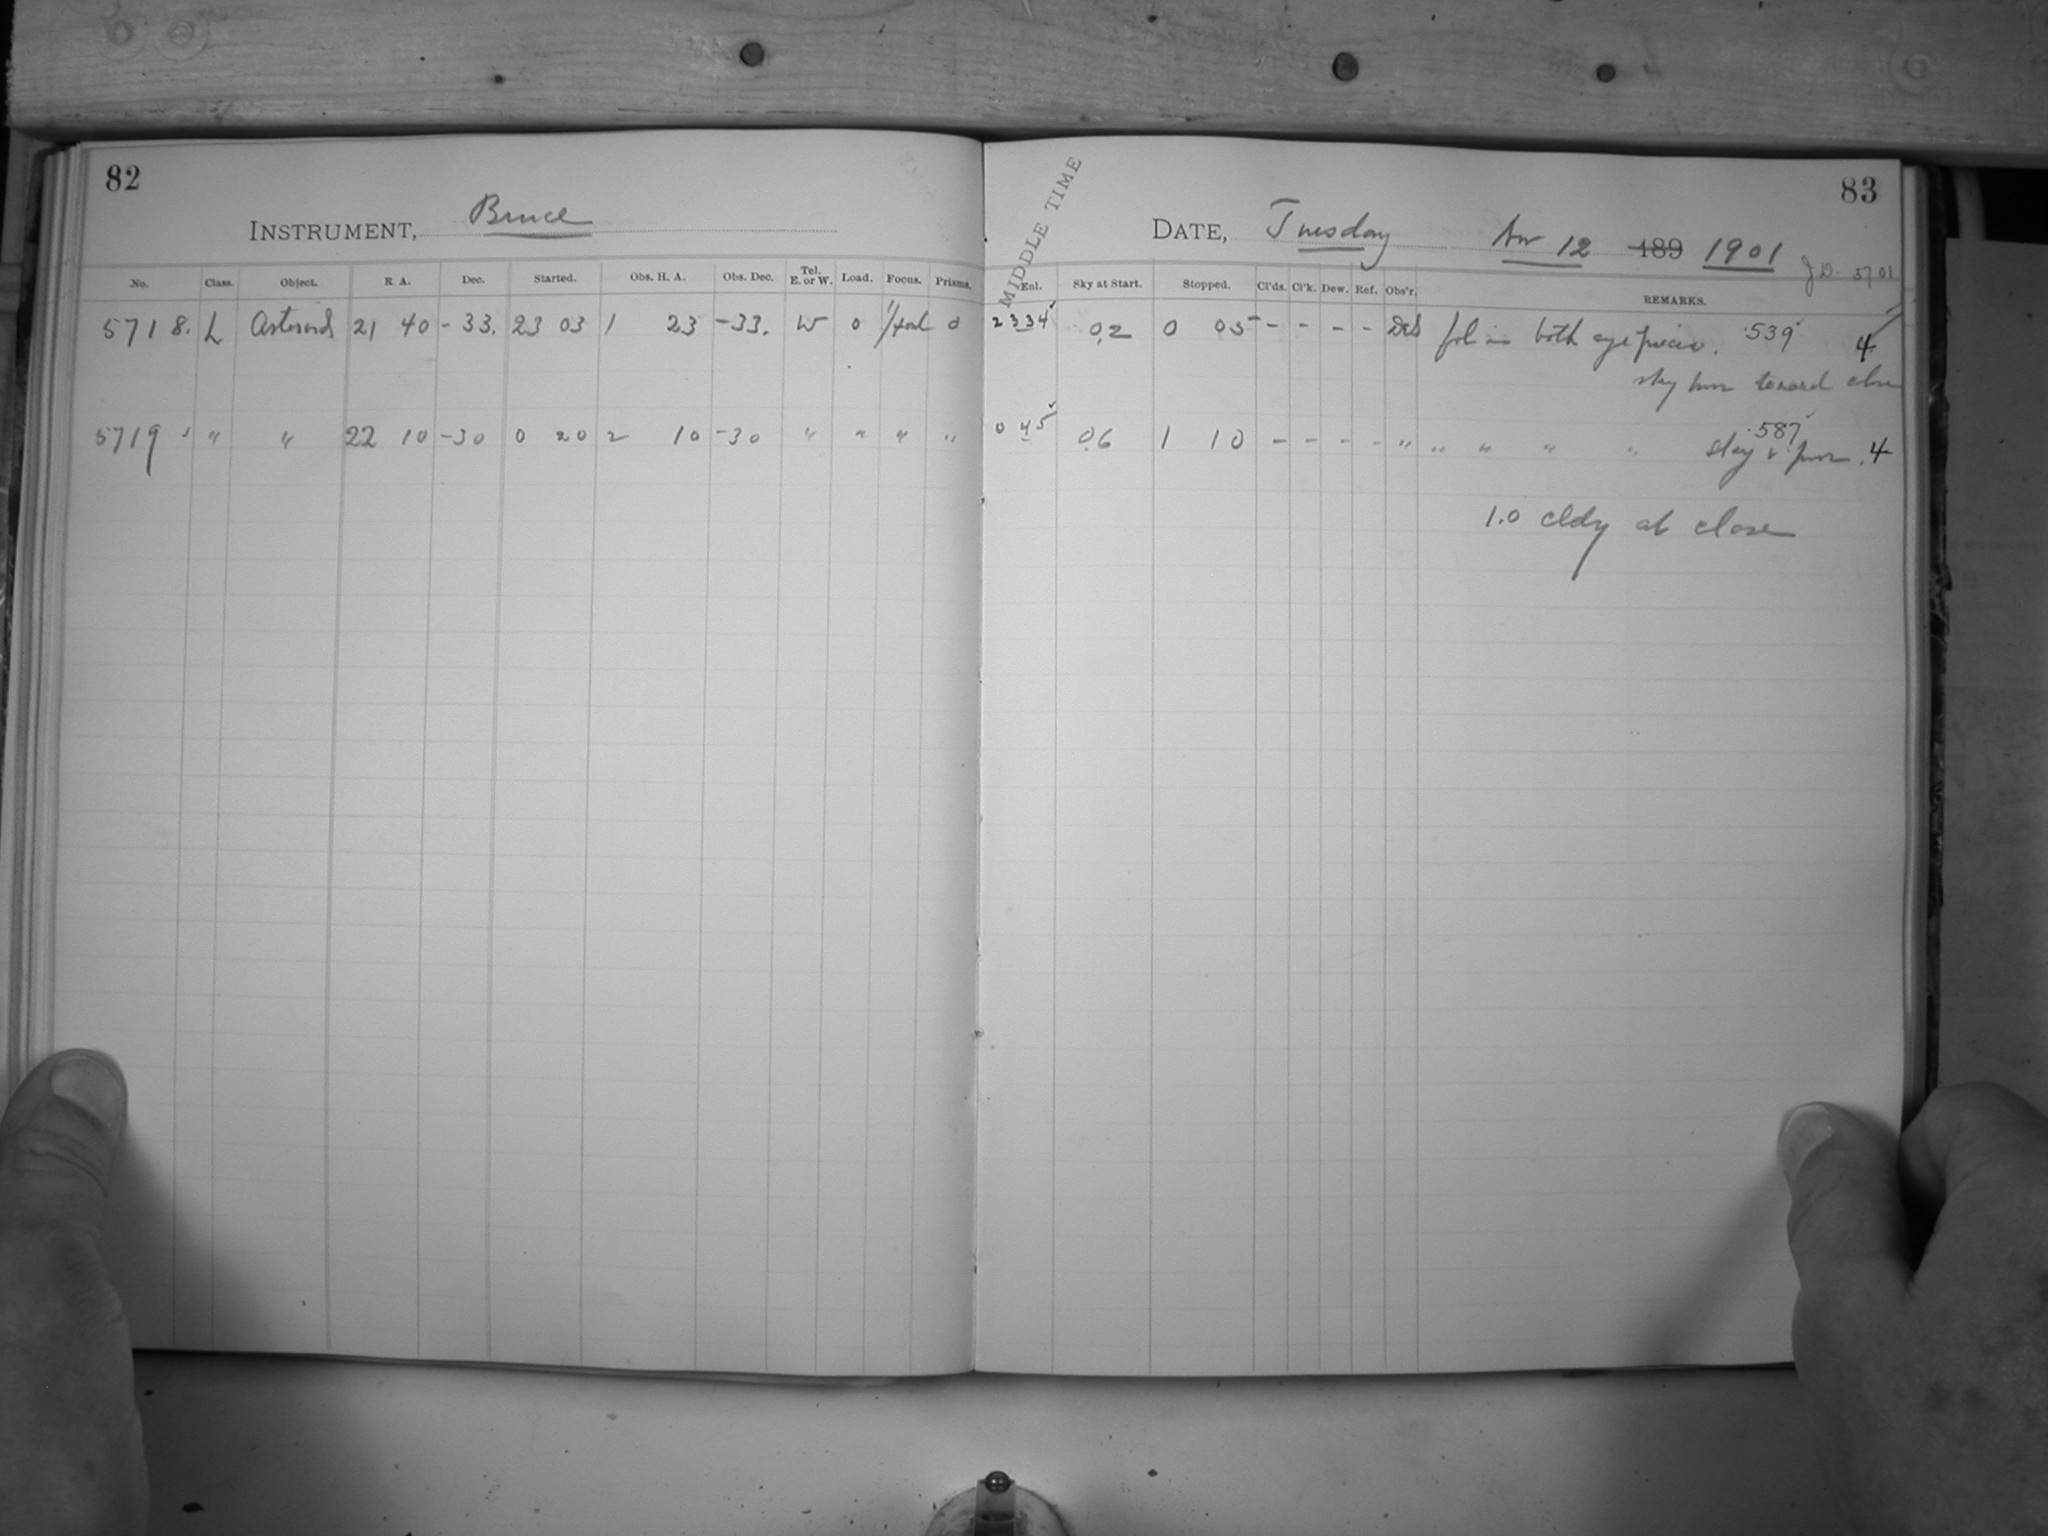 82
INSTRUMENT, Bruce
No. Class. Object. R. A. Dec. Started. Obs. H. A. Obs. Dec. Tel. E. or W. Load. Focus. Prisms.
5718. L Asteroid 21 40 -33. 23 03 1 23 -33. W 0 0
5719 " " 22 10 -30 0 20 2 10 -30 " " " "
83
MIDDLE TIME
DATE, Tuesday Nov 12 189 1901
J.D. 5701
Eul. Sky at Start. Stopped. Cl'ds. Cl'k. Dew. Ref. Obs'r. REMARKS.
23 34 0.2 0 05 - - - - fol in both eye pieces. .539 4
sky poor toward close
0 45 0.6 1 10 - - - - " " " " " sky v poor .587 4
1.0 cldy at close